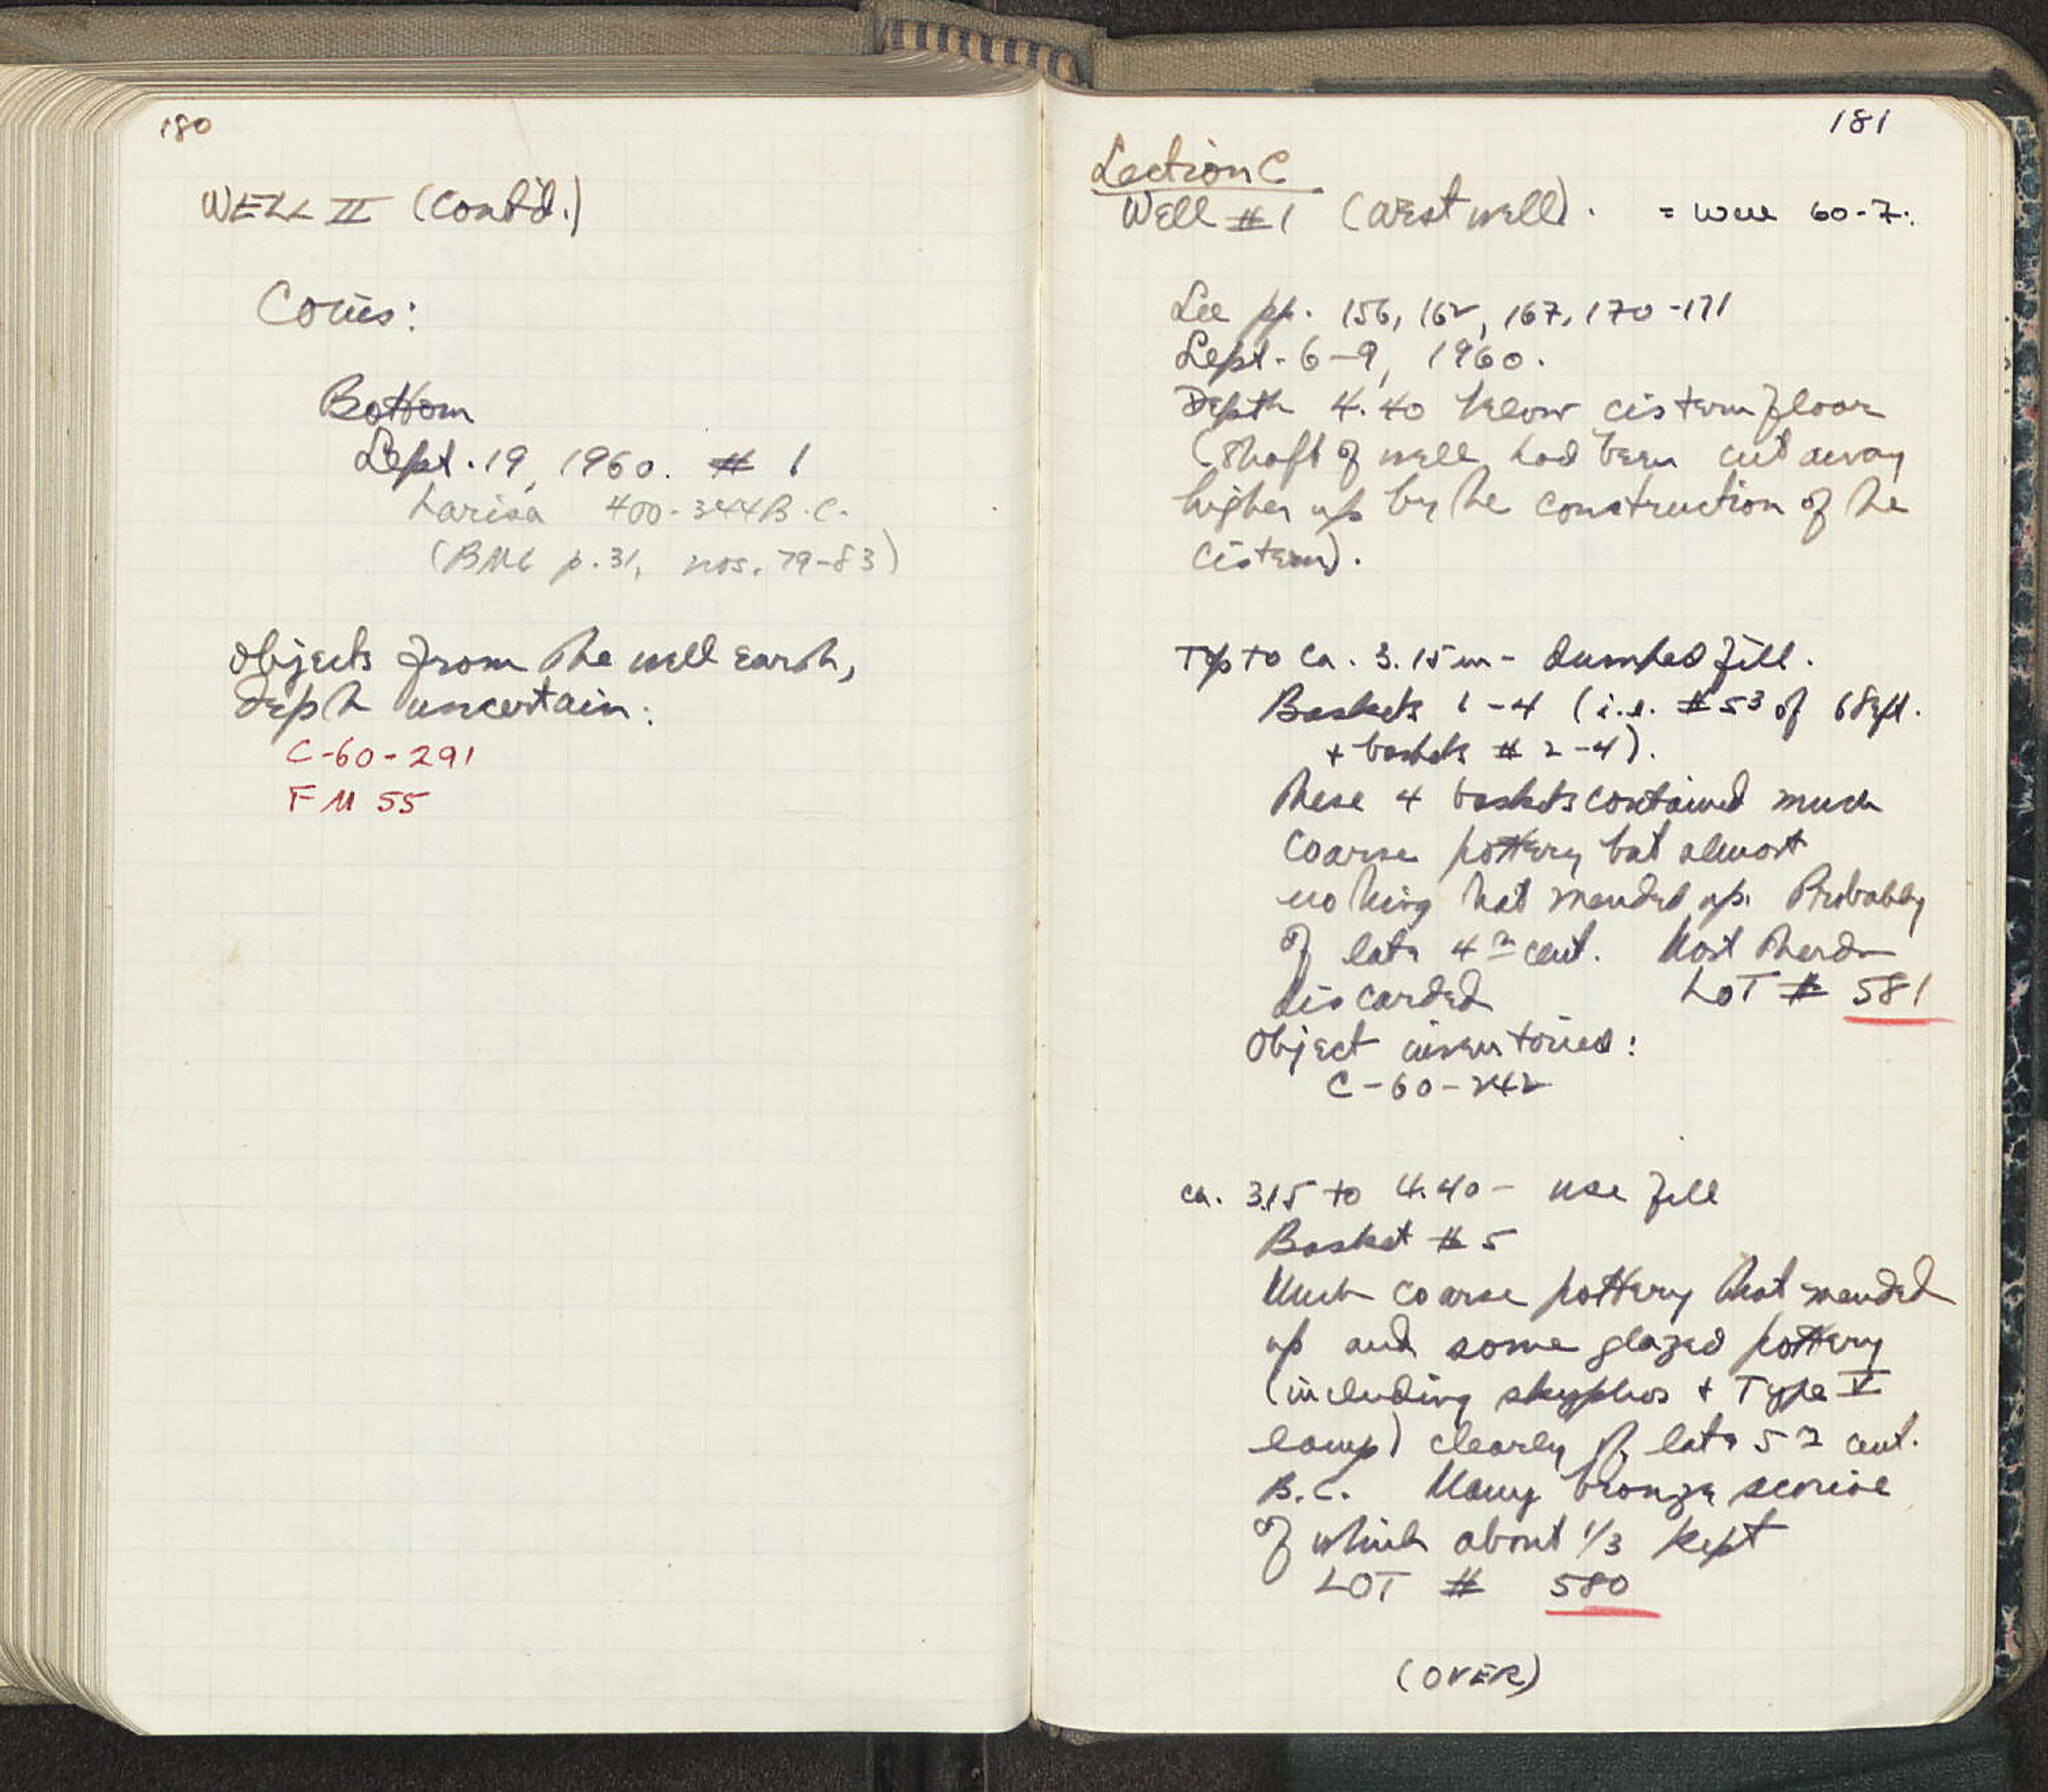 180
WELL II (Cont'd.)
Coins:
Bottom
Sept. 19, 1960. # 1
Larisa 400-344 B.C.
(BMC p. 31, nos. 79-83)
Objects from the well earth,
depth uncertain:
C-60-291
FM 55
181
Section C
Well #1 (West well). = Well 60-7.
See pp. 156, 162, 167, 170-171
Sept. 6-9, 1960.
Depth 4.40 below cistern floor
(Shaft of well had been cut away
higher up by the construction of the
cistern).
Top to ca. 3.15 m - dumped fill.
Baskets 1-4 (i.e. #53 of 6 Sept.
+ baskets # 2-4).
These 4 baskets contained much
coarse pottery but almost
nothing that mended up. Probably
of late 4th cent. Most sherds
discarded LOT # 581
Object inventoried:
C-60-242
ca. 3.15 to 4.40 - use fill
Basket # 5
Much coarse pottery that mended
up and some glazed pottery
(including skyphos + Type V
lamp) clearly of late 5th cent.
B.C. Many bronze scoriae
of which about 1/3 kept
LOT # 580
(OVER)